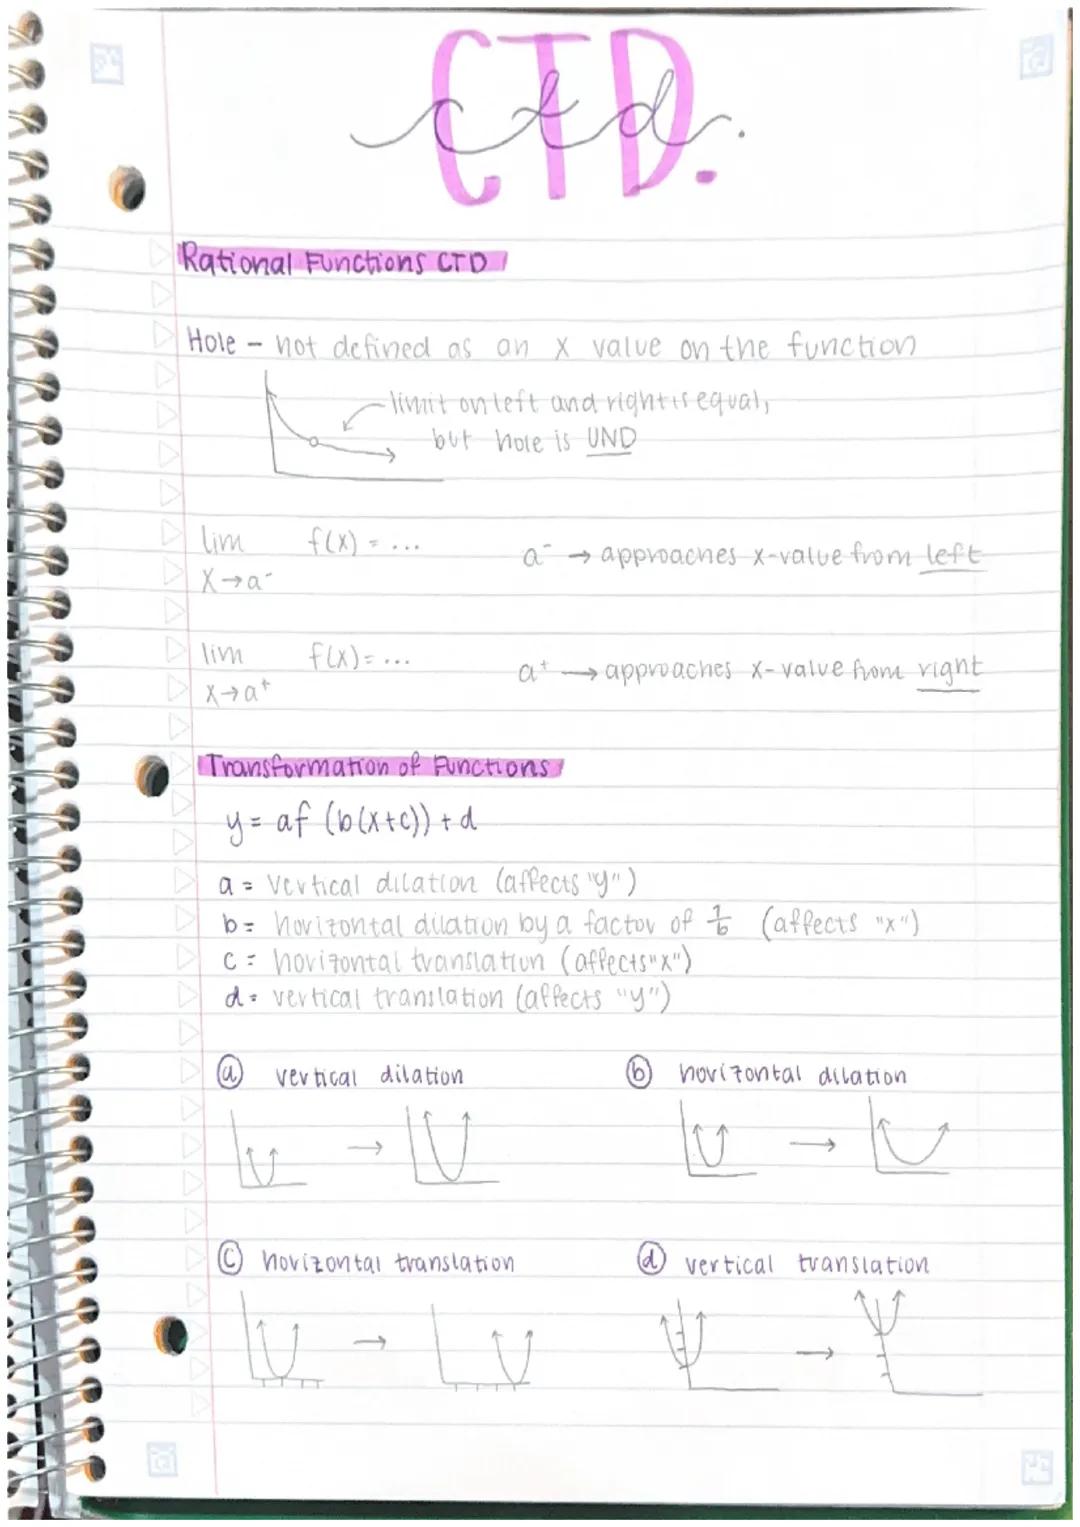 CTD.
ctd.
Rational Functions CTD
Hole - not defined as an x value on the function
limit on left and right is equal,
but hole is UND
lim f(x) = ...
x→a⁻
a⁻ → approaches x-value from left
lim f(x) = ...
x→a⁺
a⁺ → approaches x-value from right
Transformation of Functions
y = af (b(x+c)) + d
a = vertical dilation (affects "y")
b = horizontal dilation by a factor of 1/b (affects "x")
c = horizontal translation (affects "x")
d = vertical translation (affects "y")
ⓐ vertical dilation
ⓑ horizontal dilation
ⓒ horizontal translation
ⓓ vertical translation